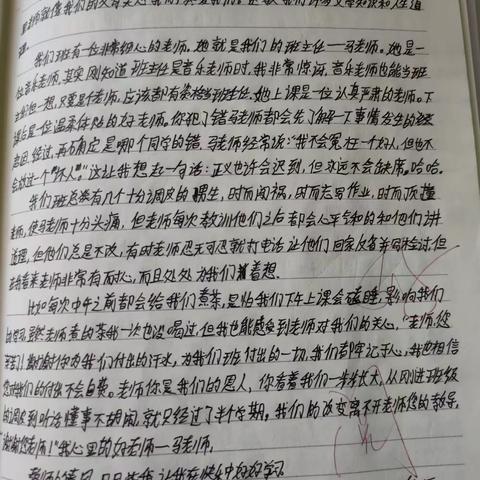 我们班有一位非常细心的老师。她就是我们的班主任—马老师。她是一
位音乐老师,其实刚知道班主任是音乐老师时,我非常惊讶,音乐老师也能当班
主任但一想,只要是个老师,应该都有资格当班主任.她上课是一位认真严肃的老师。下
课后是一位温柔体贴的好老师。你犯了错马老师都会先了解一下事情发生的经
过,再去确定是哪个同学的错.马老师经常说:“我不会冤枉一个好人,但也不
会放过一个“坏人””这让我想起一句话:正义也许会迟到,但永远不会缺席。哈哈。
我们班总是有几个十分调皮的男生,时而闯祸,时而忘写作业,时而顶撞
老师,使马老师十分头痛,但老师每次教训他们之后都会心平气和的和他们讲
道理,但他们总是不改,有时老师忍无可忍就打电话让他们回家反省并写检讨但
老师非常有耐心,而且处处为我们着想.
比如每次中午之前都会给我们煮茶,是怕我们下午上课会瞌睡,影响我们
的学习.虽然老师煮的茶我一次也没喝过,但我也能感受到老师对我们的关心,“老师,您
辛苦了!您为我们付出的汗水,为我们班付出的一切,我们都牢记于心,我也相信
您对我们的付出不会白费。老师你是我们的恩人,你看着我们一步步长大,从刚进班级
的调皮到听话懂事不胡闹,就只经过了半个学期,我们的改变离不开老师您的教导,
谢谢您老师!”我心里的好老师—马老师.